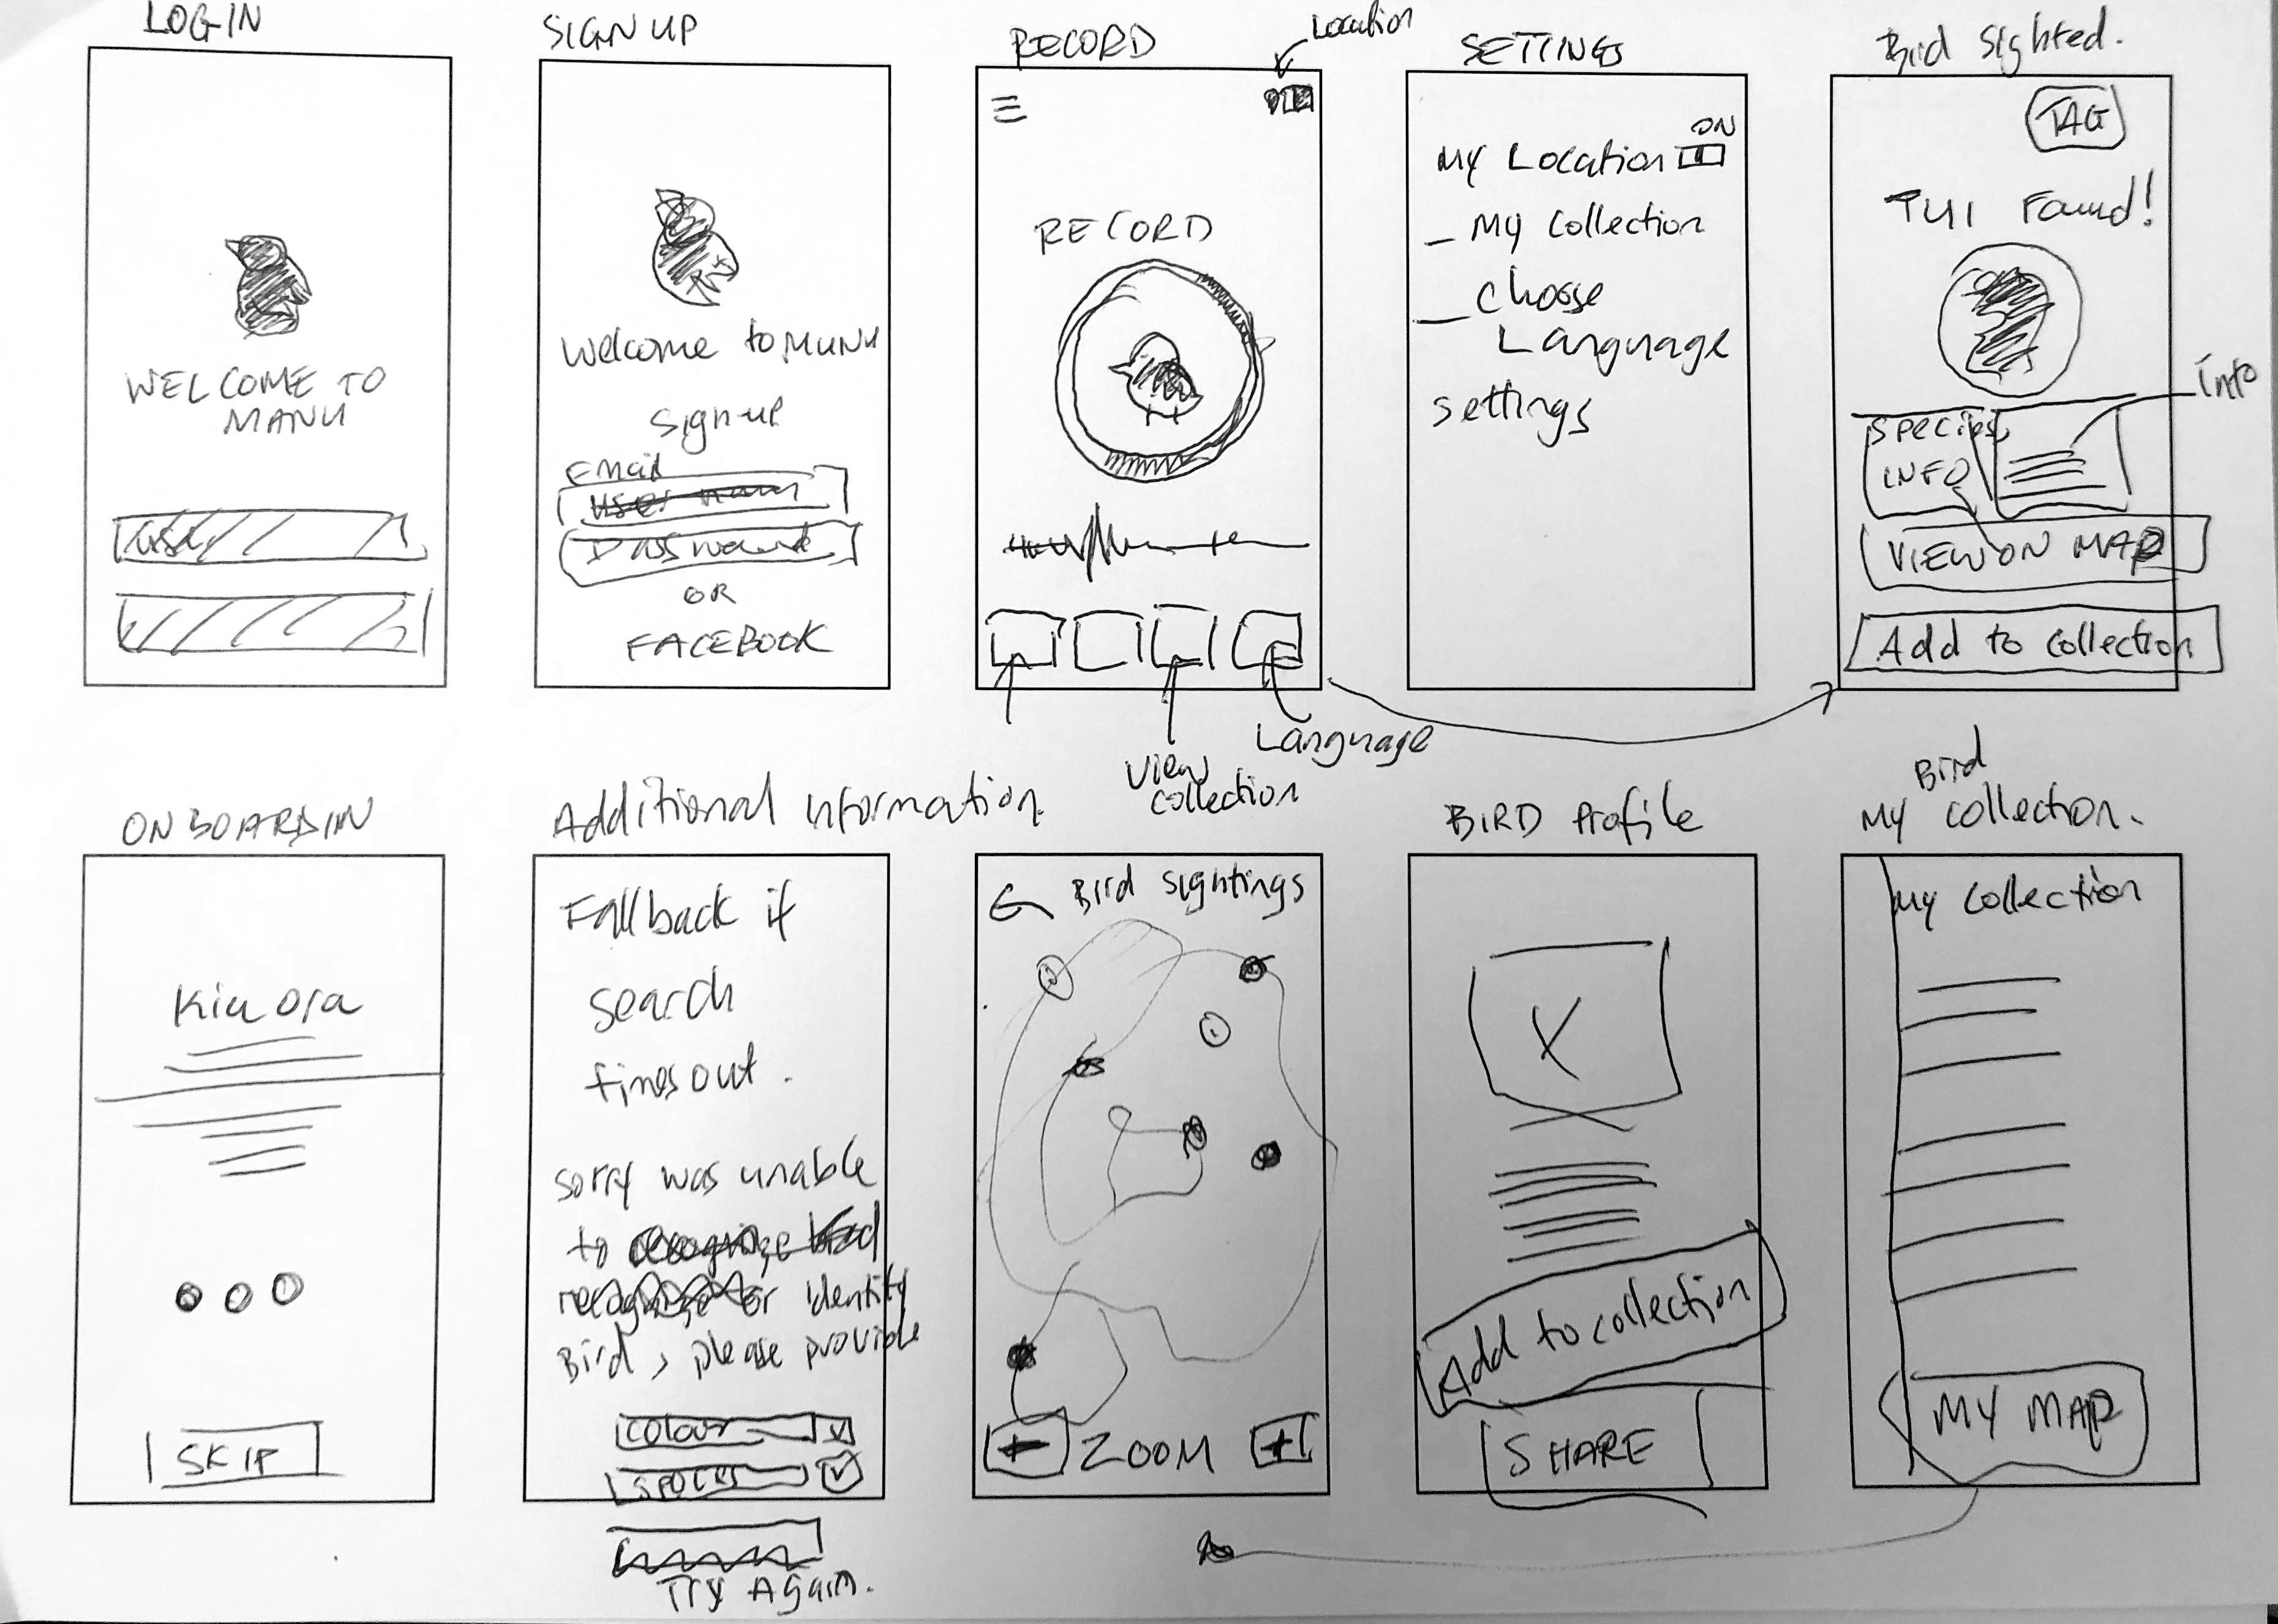 LOGIN
WELCOME TO
MANU
SIGN UP
Welcome to MANU
Sign-up
Email
Password
OR
FACEBOOK
RECORD
Location
RECORD
View
collection
Language
SETTINGS
ON
My Location
My Collection
Choose
Language
settings
Bird Sighted.
TAG
TUI Found!
info
Species
INFO
VIEW ON MAP
Add to collection
ONBOARDIN
Kia ora
SKIP
Additional information.
Fallback if
search
times out.
sorry was unable
to
or identity
Bird, please provide
COLOUR
Try Again.
Bird sightings
ZOOM
BIRD Profile
X
Add to collection
SHARE
Bird
My collection.
My Collection
MY MAP